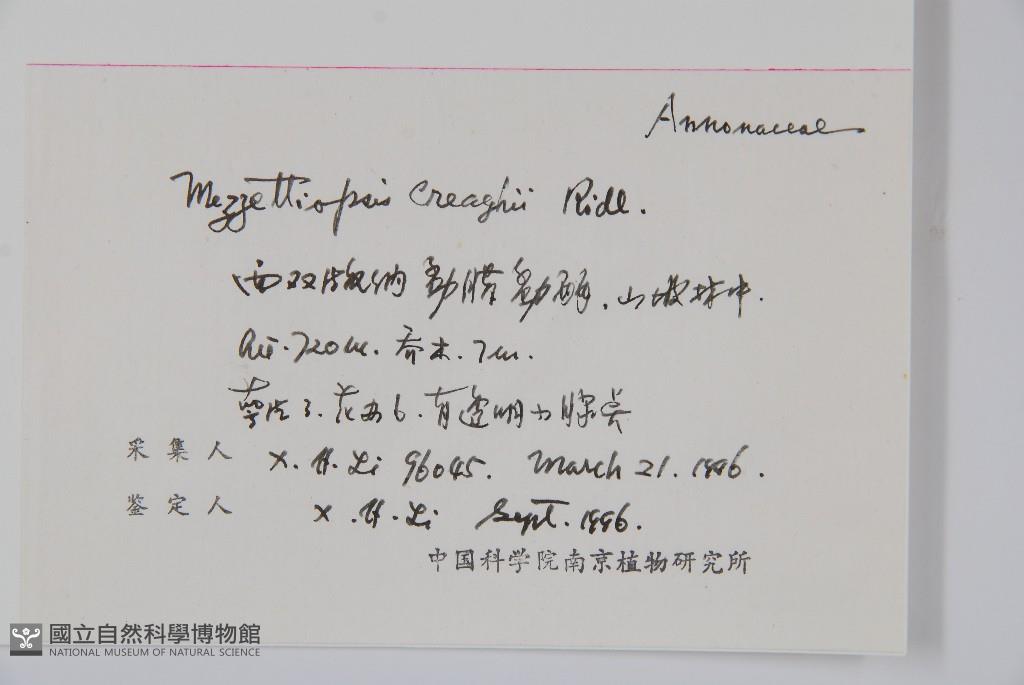 Annonaceae
Mezzettiopsis Creaghii Ridl.
西双版纳勐腊勐醒, 山坡林中.
Alt. 720m. 乔木. 7m.
萼片3. 花瓣6. 有透明
采集人 X. H. Li 96045. March 21. 1996.
鉴定人 X. H. Li Sept. 1996.
中国科学院南京植物研究所
國立自然科學博物館
NATIONAL MUSEUM OF NATURAL SCIENCE